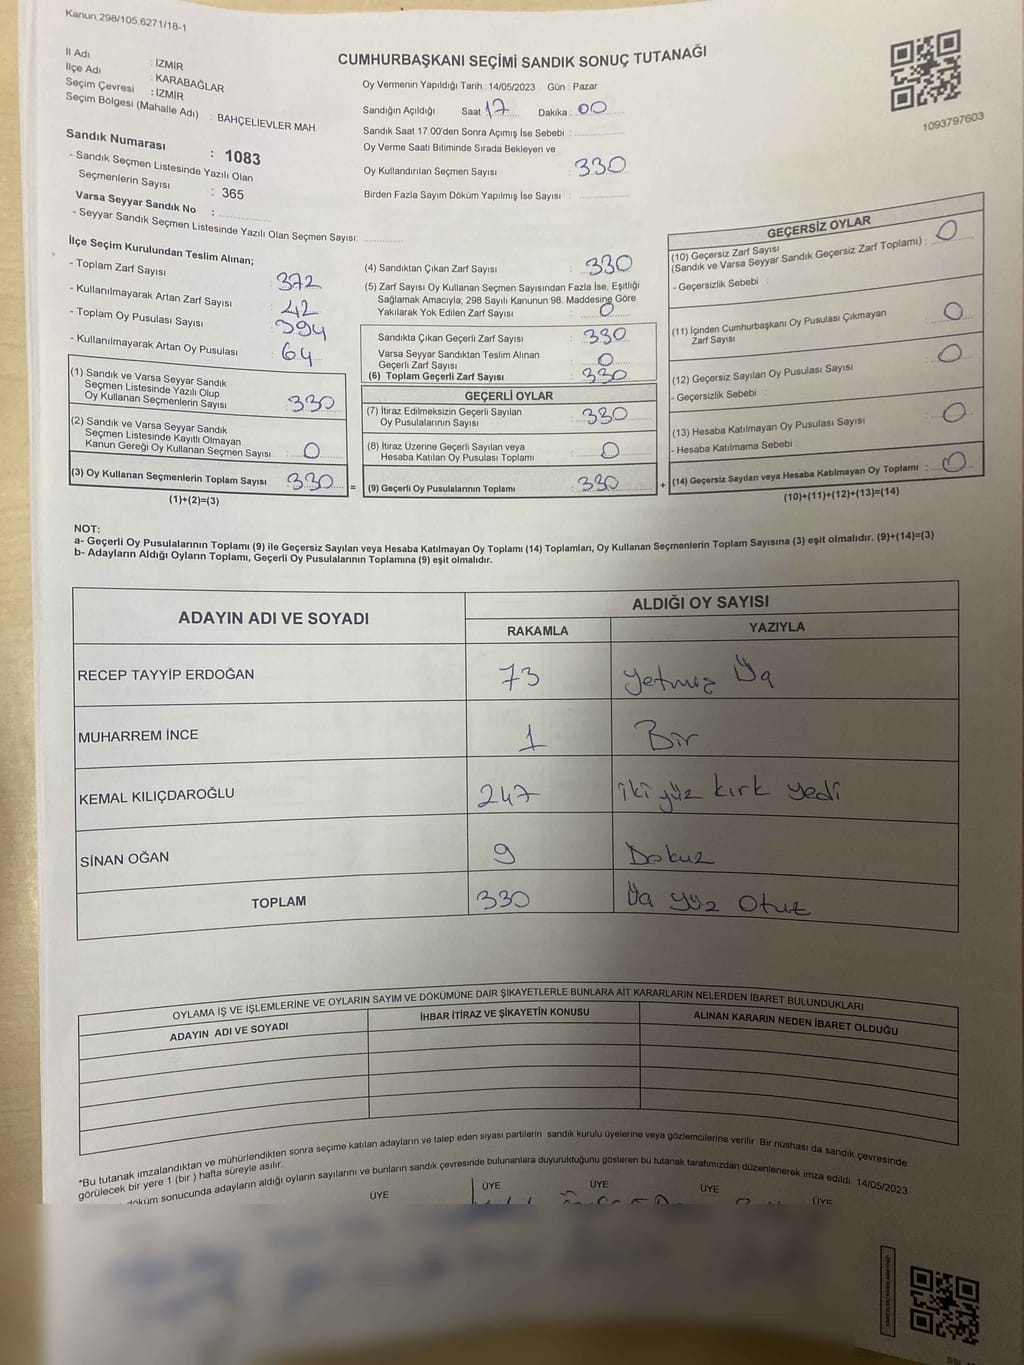 Kanun;298/105,6271/18-1
CUMHURBAŞKANI SEÇİMİ SANDIK SONUÇ TUTANAĞI
1093797603
İl Adı : İZMİR
İlçe Adı : KARABAĞLAR
Seçim Çevresi : İZMİR
Seçim Bölgesi (Mahalle Adı) : BAHÇELİEVLER MAH.
Sandık Numarası : 1083
- Sandık Seçmen Listesinde Yazılı Olan
Seçmenlerin Sayısı : 365
Varsa Seyyar Sandık No :
- Seyyar Sandık Seçmen Listesinde Yazılı Olan Seçmen Sayısı:
Oy Vermenin Yapıldığı Tarih : 14/05/2023 Gün : Pazar
Sandığın Açıldığı Saat 17 Dakika : 00
Sandık Saat 17.00'den Sonra Açımış İse Sebebi :
Oy Verme Saati Bitiminde Sırada Bekleyen ve
Oy Kullandırılan Seçmen Sayısı : 330
Birden Fazla Sayım Döküm Yapılmış İse Sayısı :
İlçe Seçim Kurulundan Teslim Alınan;
- Toplam Zarf Sayısı : 372
- Kullanılmayarak Artan Zarf Sayısı : 42
- Toplam Oy Pusulası Sayısı : 394
- Kullanılmayarak Artan Oy Pusulası : 64
(1) Sandık ve Varsa Seyyar Sandık
Seçmen Listesinde Yazılı Olup
Oy Kullanan Seçmenlerin Sayısı : 330
(2) Sandık ve Varsa Seyyar Sandık
Seçmen Listesinde Kayıtlı Olmayan
Kanun Gereği Oy Kullanan Seçmen Sayısı : 0
(3) Oy Kullanan Seçmenlerin Toplam Sayısı : 330 =
(1)+(2)=(3)
(4) Sandıktan Çıkan Zarf Sayısı : 330
(5) Zarf Sayısı Oy Kullanan Seçmen Sayısından Fazla İse, Eşitliği
Sağlamak Amacıyla; 298 Sayılı Kanunun 98. Maddesine Göre
Yakılarak Yok Edilen Zarf Sayısı : 0
Sandıkta Çıkan Geçerli Zarf Sayısı : 330
Varsa Seyyar Sandıktan Teslim Alınan
Geçerli Zarf Sayısı : 0
(6) Toplam Geçerli Zarf Sayısı : 330
GEÇERLİ OYLAR
(7) İtiraz Edilmeksizin Geçerli Sayılan
Oy Pusulalarının Sayısı : 330
(8) İtiraz Üzerine Geçerli Sayılan veya
Hesaba Katılan Oy Pusulası Toplamı : 0
(9) Geçerli Oy Pusulalarının Toplamı : 330 +
GEÇERSİZ OYLAR
(10) Geçersiz Zarf Sayısı
(Sandık ve Varsa Seyyar Sandık Geçersiz Zarf Toplamı) : 0
- Geçersizlik Sebebi :
(11) İçinden Cumhurbaşkanı Oy Pusulası Çıkmayan
Zarf Sayısı : 0
(12) Geçersiz Sayılan Oy Pusulası Sayısı : 0
- Geçersizlik Sebebi :
(13) Hesaba Katılmayan Oy Pusulası Sayısı : 0
- Hesaba Katılmama Sebebi :
(14) Geçersiz Sayılan veya Hesaba Katılmayan Oy Toplamı : 0
(10)+(11)+(12)+(13)=(14)
NOT:
a- Geçerli Oy Pusulalarının Toplamı (9) ile Geçersiz Sayılan veya Hesaba Katılmayan Oy Toplamı (14) Toplamları, Oy Kullanan Seçmenlerin Toplam Sayısına (3) eşit olmalıdır. (9)+(14)=(3)
b- Adayların Aldığı Oyların Toplamı, Geçerli Oy Pusulalarının Toplamına (9) eşit olmalıdır.
ADAYIN ADI VE SOYADI ALDIĞI OY SAYISI
RAKAMLA YAZIYLA
RECEP TAYYİP ERDOĞAN 73 Yetmiş Üç
MUHARREM İNCE 1 Bir
KEMAL KILIÇDAROĞLU 247 iki yüz kırk yedi
SİNAN OĞAN 9 Dokuz
TOPLAM 330 Üç yüz Otuz
OYLAMA İŞ VE İŞLEMLERİNE VE OYLARIN SAYIM VE DÖKÜMÜNE DAİR ŞİKAYETLERLE BUNLARA AİT KARARLARIN NELERDEN İBARET BULUNDUKLARI
ADAYIN ADI VE SOYADI İHBAR İTİRAZ VE ŞİKAYETİN KONUSU ALINAN KARARIN NEDEN İBARET OLDUĞU
*Bu tutanak imzalandıktan ve mühürlendikten sonra seçime katılan adayların ve talep eden siyasi partilerin sandık kurulu üyelerine veya gözlemcilerine verilir. Bir nüshası da sandık çevresinde
görülecek bir yere 1 (bir ) hafta süreyle asılır.
döküm sonucunda adayların aldığı oyların sayılarını ve bunların sandık çevresinde bulunanlara duyurulduğunu gösteren bu tutanak tarafımızdan düzenlenerek imza edildi. 14/05/2023
ÜYE ÜYE ÜYE ÜYE ÜYE